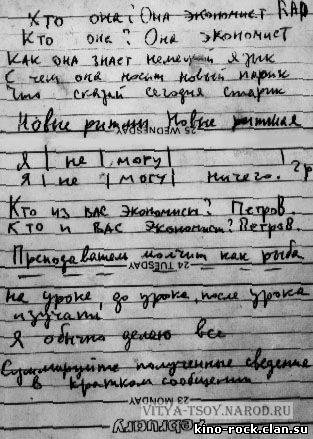 Кто она? Она экономист ПАР
Кто она? Она экономист
Как она знает немецкий язык
С чем она носит новый парик
Что сказал сегодня старик
Новые ритмы Новые
25 WEDNESDAY
Я | не | могу |
Я | не | могу | ничего. Гр
Кто из вас экономист? Петров.
Кто и вас экономист? Петров.
Преподаватель молчит как рыба
24 TUESDAY
На уроке, до урока, после урока
изучаем
Я обычно делаю все
Суммируйте полученные сведения
в кратком сообщении
23 MONDAY
VITYA-TSOY.NAROD.RU
February
kino-rock.clan.su